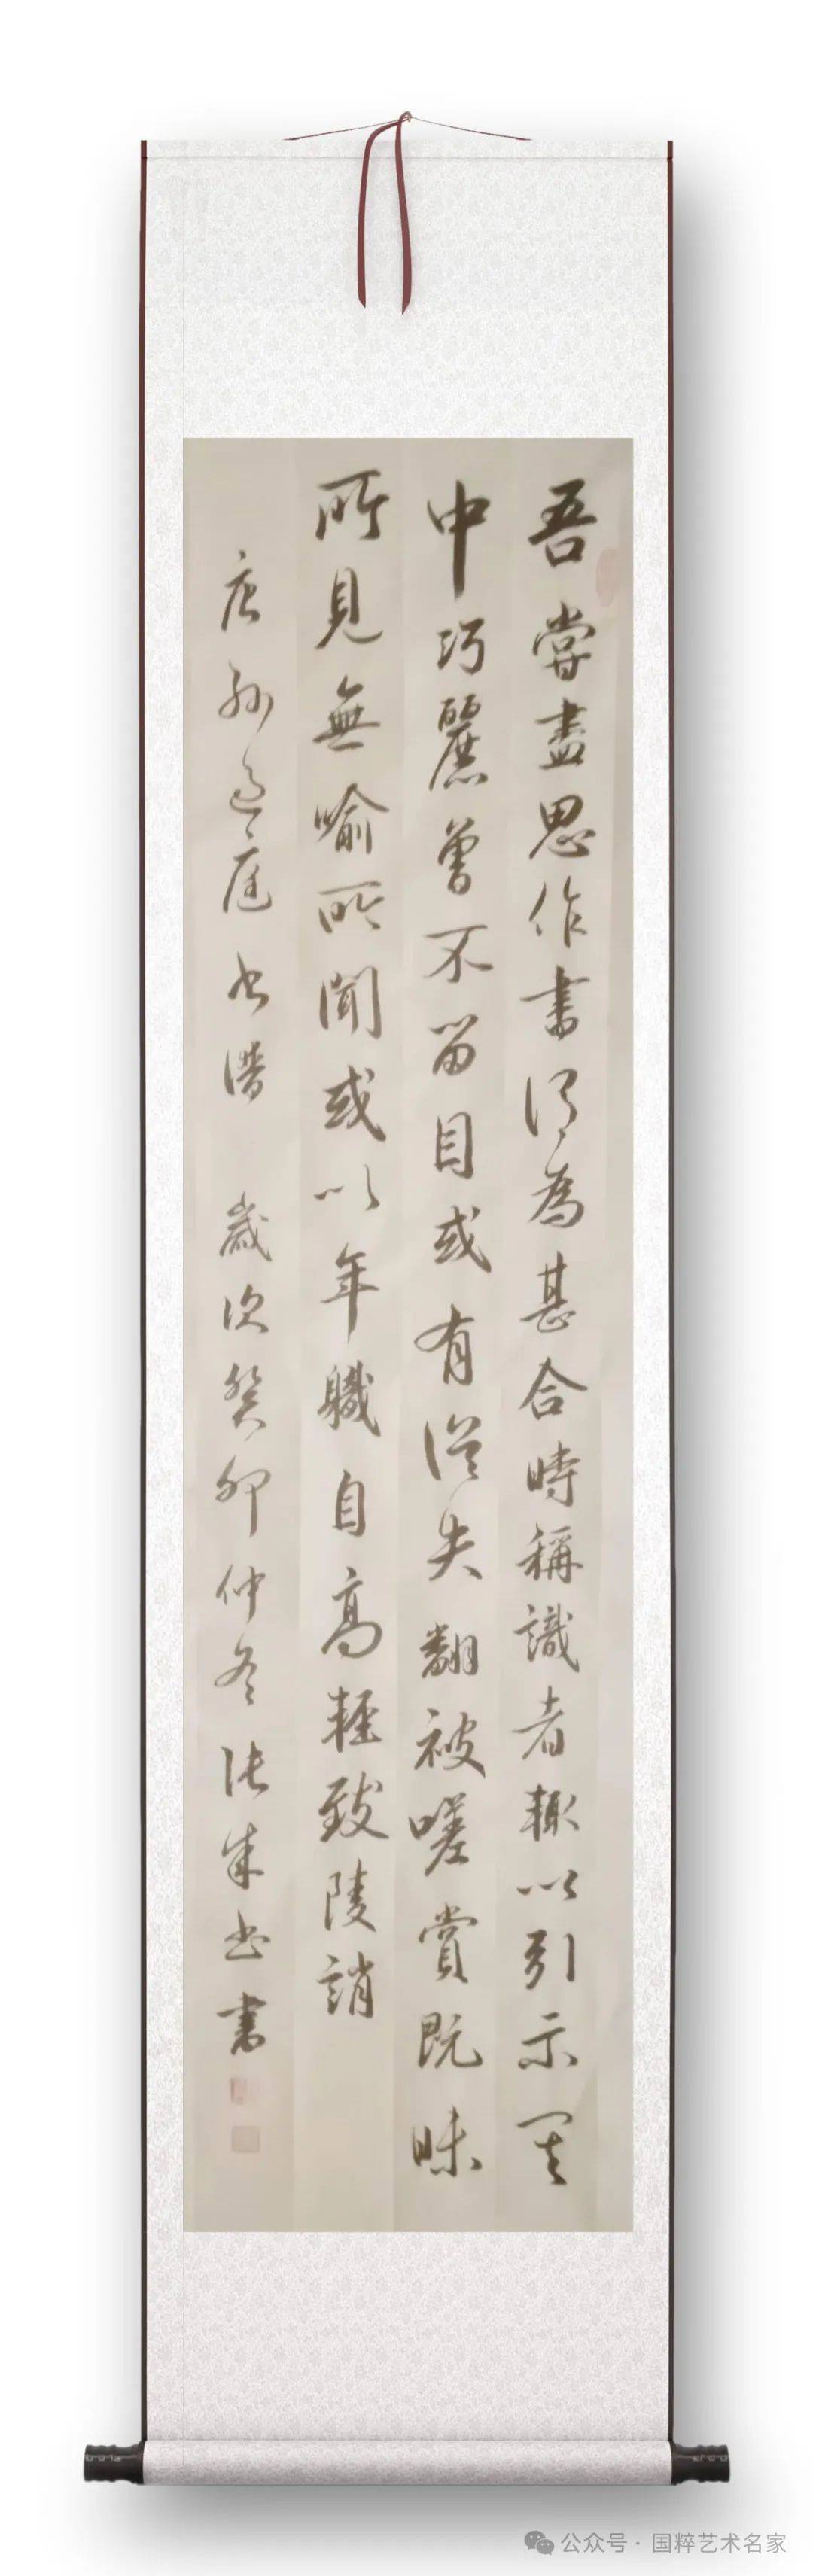 吾尝盡思作書謂為甚合時稱識者輙以引示其
中巧麗曾不留目或有誤失翻被嗟賞既昧
所見無喻所聞或以年職自高輕致陵誚
唐孫過庭書譜 歲次癸卯仲冬張成出書
公众号 · 国粹艺术名家